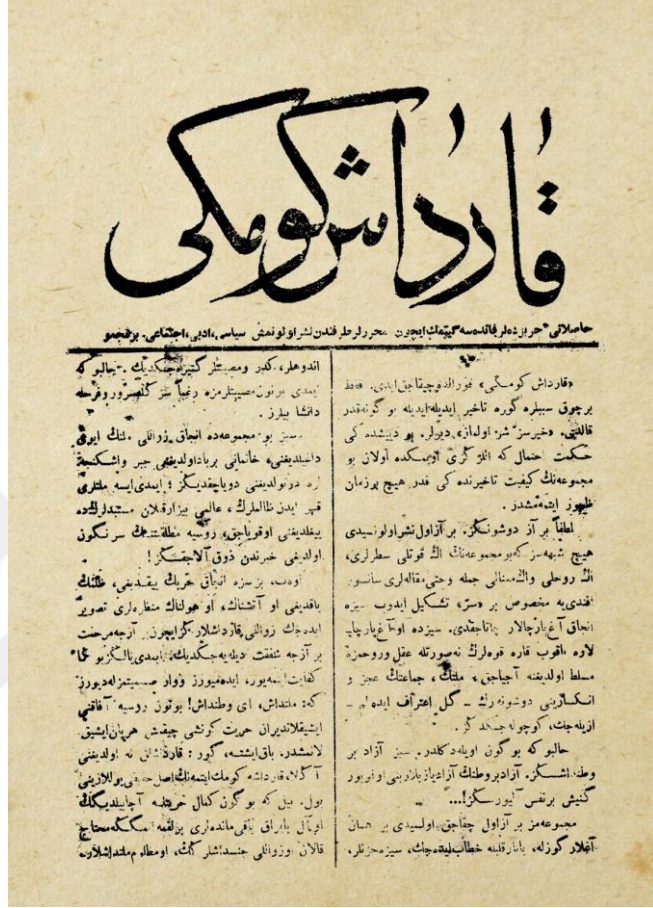 قارداش كومكی
حاصلاتی حربزده‌لر فائده‌سه گیتمك ایچون محررلر طرفندن نشر اولونمش سیاسی، ادبی، اجتماعی بر مجموعه
«قارداش كومكی» فورا چیقاجق ایدی. فقط
بر چوق سببلره گوره تاخیر ایدیله ایدیله بو گونه قدر
قالدی. «خیرسز شر اولماز» دیرلر. بو دییشده كی
حكمت احتمال كه الڭ گری اولان بو
مجموعه‌نڭ كیفیت تاخیرنده كی قدر هیچ بر زمان
ظهور ایتمه‌مشدر.
لطفاً بر آز دوشونڭز. بر آز اول نشر اولونسیدی
هیچ شبهه‌سز كه بو مجموعه‌نڭ الڭ قوتلی سطرلری،
الڭ روحلی والڭ معنالی جمله وحتی مقاله‌لری سانسور
افندی‌یه مخصوص بر «سز» تشكیل ایدوب سیزه
انجاق آغ پارچالار چاتاجقدی. سیزده او آغ پارچا
لاره باقوب قاره قوه‌لرڭ نه صورتله عقل وروحمزه
مسلط اولدیغنه آجیاجق، ملتڭ، جماعتڭ عجز و
انكسارینی دوشونه‌رك ـ گل اعتراف ایده‌لم ـ
ازیله‌جك، كوچوله‌جكدڭز.
حالبو كه بو گون اویله دكلدر. سیز آزاد بر
وطنداشسڭز. آزاد بر وطنڭ آزاد یازیلارینی اوخویور
گنیش بر نفس آلیورسڭز!...
مجموعه‌مز بر آز اول چیقاجق اولسیدی بر همان
آغلار گوزله، یانار قلبله خطاب ایده‌جك، سیزه حزنلر،
اندوهلر، كدر ومصیبتلر گتیره‌جكدیڭ. حالبو كه
ایمدی بوتون مصیبتلرمزه رغماً سز گلیر سرور وفرحله
دانشا بیلرز.
سیز بو مجموعه‌ده انجاق زواللی ملتڭ ایوی
داغیلدیغنی، خانمانی برباد اولدیغنی جبر واشكنجه
لره اولدیغنی دویاجقدیڭز؛ ایمدی ایسه ملتلری
قهر ایدن ظالملرڭ، عالمی بیزار قیلان مستبدلرڭده
ییغلدیغنی اوقویاجق، روسیه مطلقیتنڭ سرنگون
اولدیغی خبرندن ذوق آلاجقسڭز!
اوت، بز سزه انجاق حربڭ ییقدیغی، ظلمڭ
یاقدیغی او آتشناك، او هولناك منظره‌لری تصویر
ایده‌جك زواللی قارداشلارڭز ایچون آزجه مرحمت
بر آزجه شفقت دیله‌یه‌جكدیڭ. ایمدی یالڭز بونڭلا
كفایت ایتمه‌یور، ایده‌میورز وار صمیمیتمزله دیورز
كه: ملتداش، ای وطنداش! بوتون روسیه آفاقنی
ایشیقلاندیران حریت گونشی چیقمش هر یان ایشیق
لانمشدر. باق ایشته، گور: قارداشلق نه اولدیغنی
آڭلا، قارداشه كومك ایتمه‌نڭ اصل حقیقی یوللارینی
بول. بیل كه بو گون كمال حریتله آچابلدیگڭ
اوتالی بایراق باقی مانده‌لری بر لقمه اكمگه محتاج
قالان او زواللی جنسداشلرڭڭ، او مظلوم ملتداشلارڭ